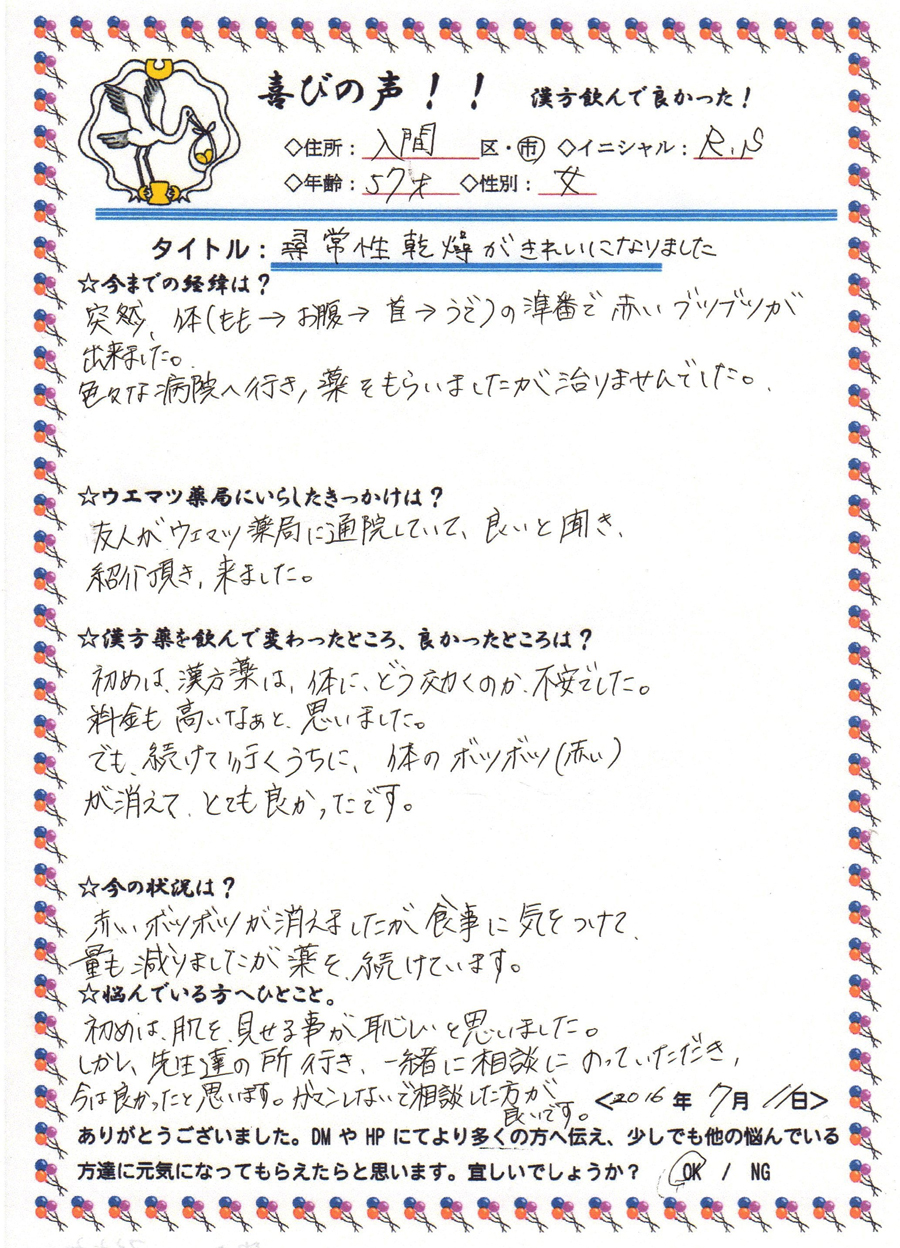 喜びの声！！ 漢方飲んで良かった！
◇住所：入間 区・市 ◇イニシャル：R.S
◇年齢：57才 ◇性別：女
タイトル：尋常性乾燥がきれいになりました
☆今までの経緯は？
突然、体(もも→お腹→首→うで)の準番で赤いブツブツが
出来ました。
色々な病院へ行き,薬をもらいましたが治りませんでした。
☆ウエマツ薬局にいらしたきっかけは？
友人がウエマツ薬局に通院していて、良いと聞き、
紹介頂き,来ました。
☆漢方薬を飲んで変わったところ、良かったところは？
初めは、漢方薬は,体に、どう効くのか、不安でした。
料金も高いなぁと、思いました。
でも、続けて行くうちに、体のボツボツ(赤い)
が消えて、とても良かったです。
☆今の状況は？
赤いボツボツが消えましたが食事に気をつけて、
量も減りましたが薬を、続けています。
☆悩んでいる方へひとこと。
初めは、肌を、見せる事が恥しいと思いました。
しかし、先生達の所行き、一緒に相談にのっていただき,
今は良かったと思います。ガマンしないで相談した方が
良いです。
<2016年 7月 11日>
ありがとうございました。DMやHPにてより多くの方へ伝え、少しでも他の悩んでいる
方達に元気になってもらえたらと思います。宜しいでしょうか？ OK / NG